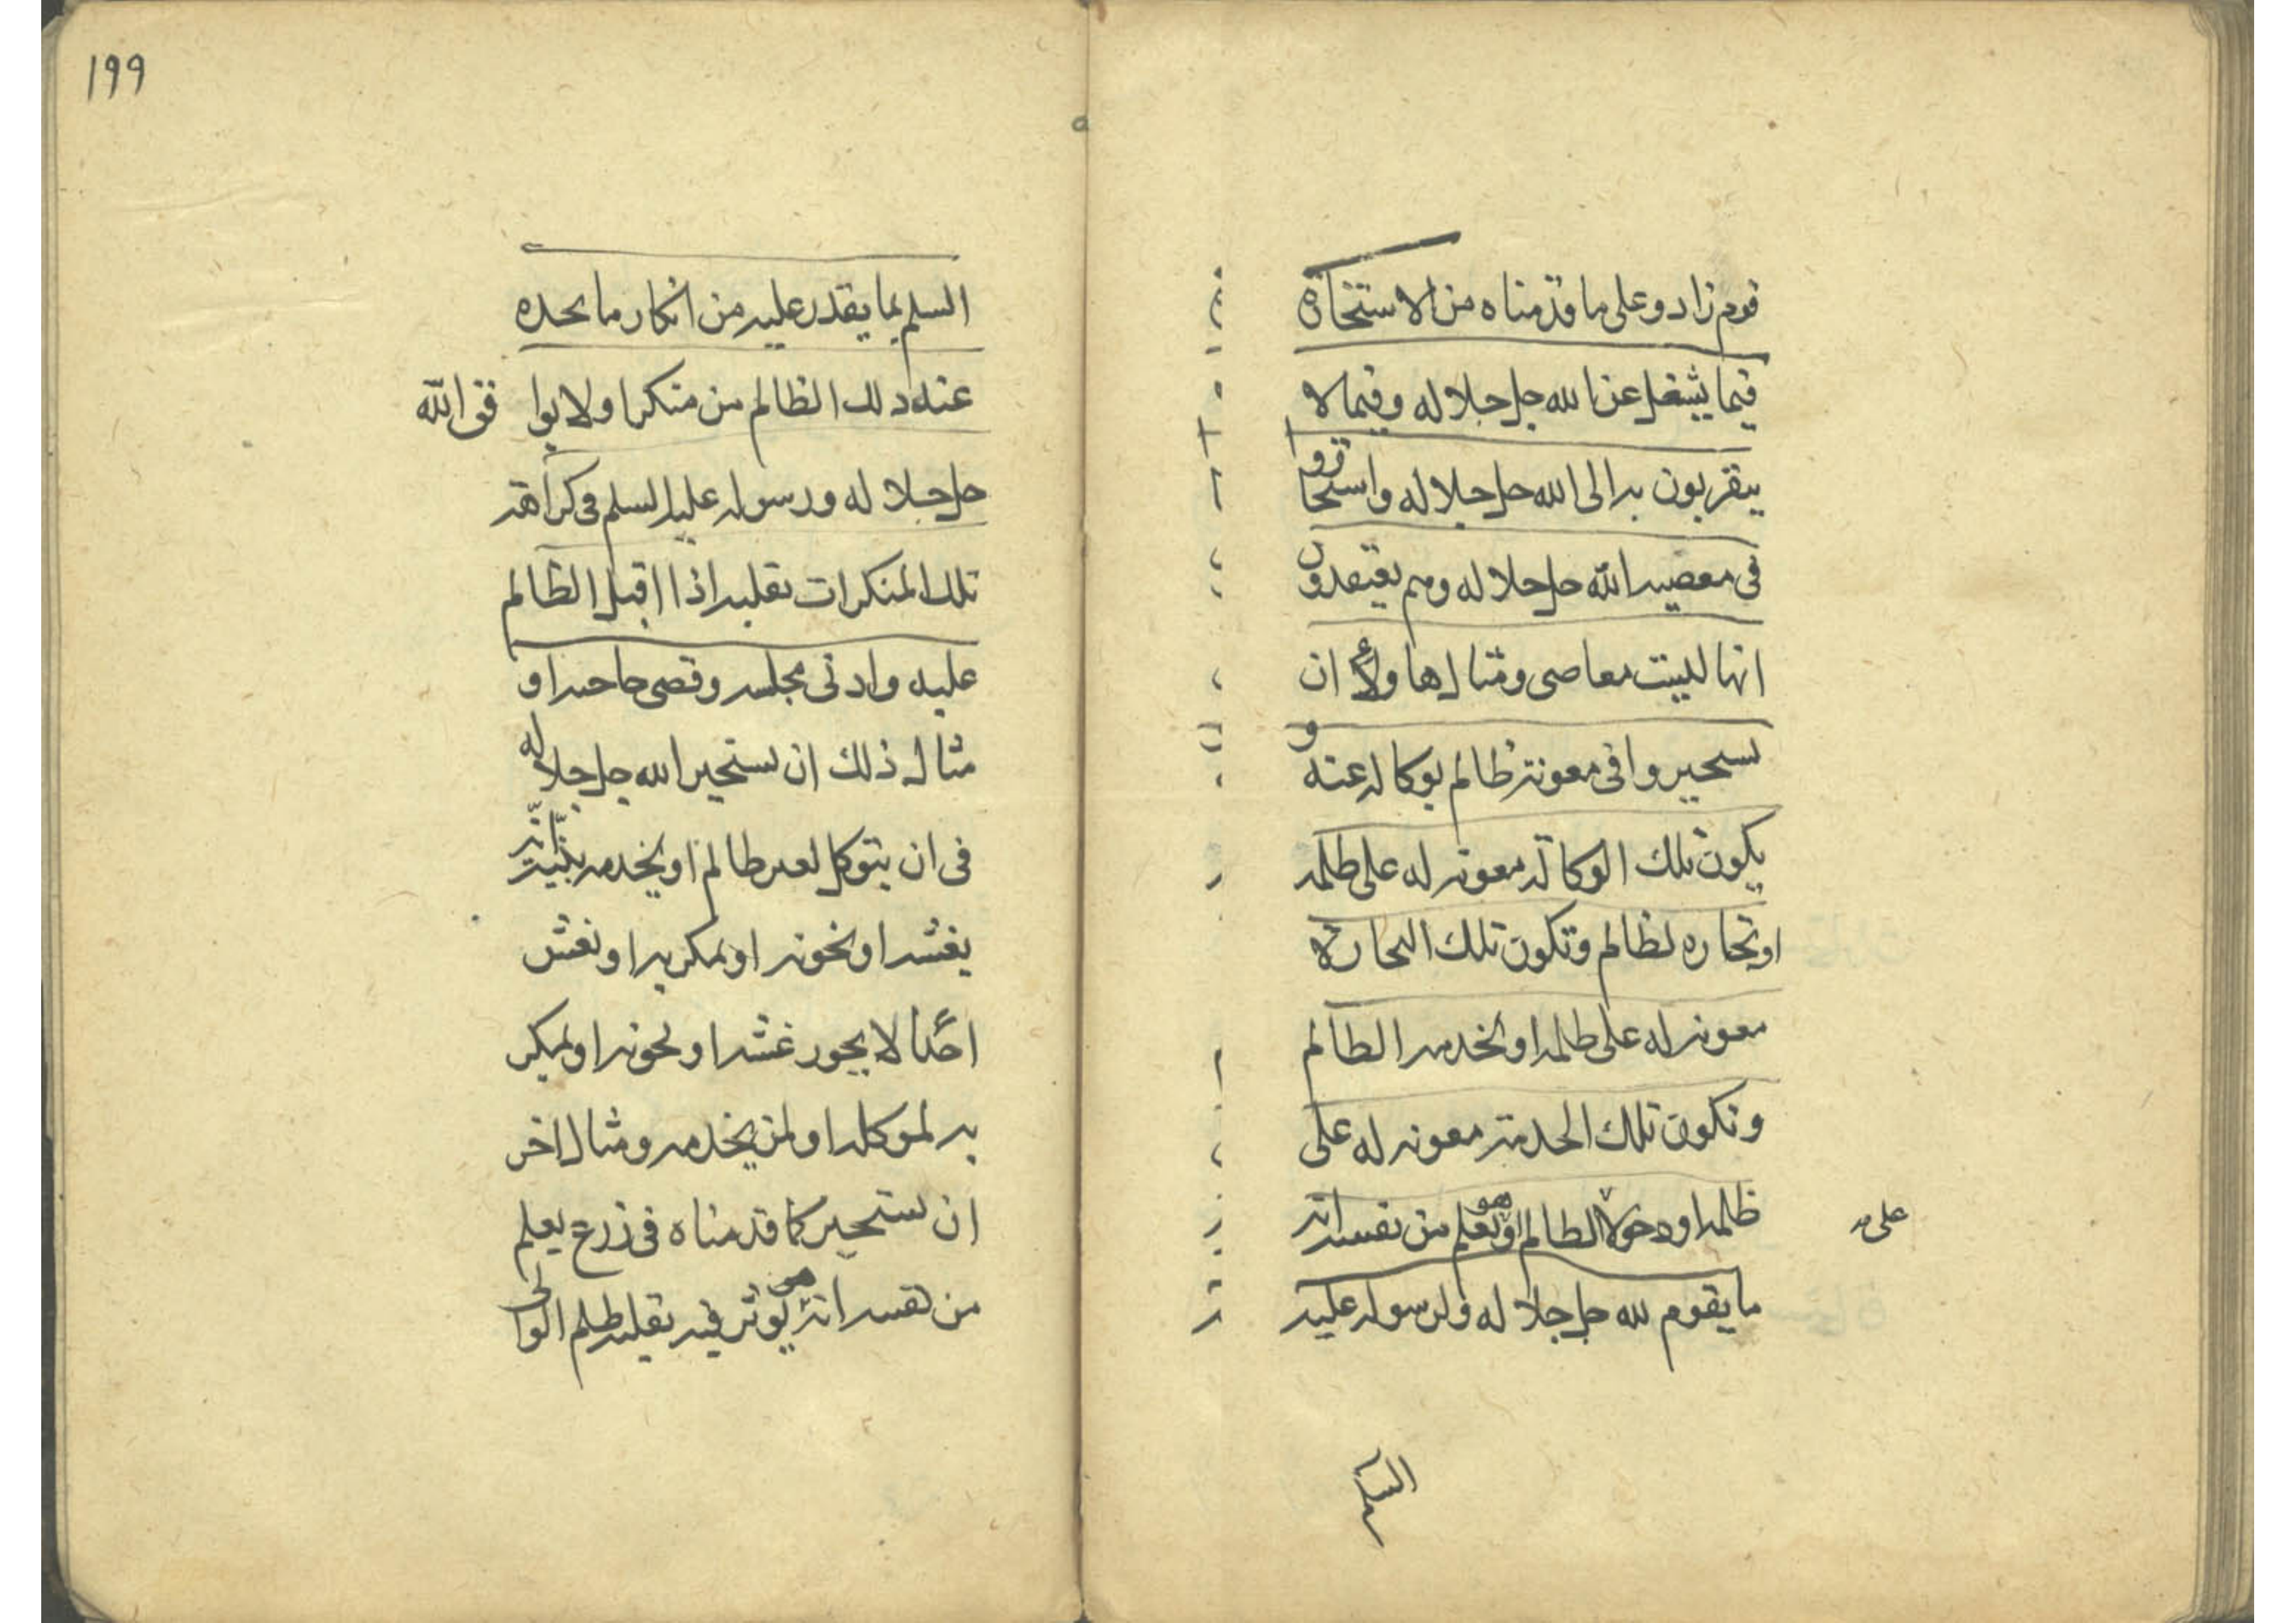 قوم زادوعلی ما قدمناه من الاستخاة
فیما یشغل عن الله جل جلاله وفیما لا
یتقربون به الی الله جل جلاله واستخاروا
فی معصیه الله جل جلاله وهم یعتقدون
انها لیست معاصی ومثالها ولا ان
لستحیروا فی معونة ظالم بوکاله عنه و
یکون تلک الوکالة معونه له علی ظلمه
او تجاره لظالم وتکون تلک التجارة
معونه له علی ظلمه او بخدمه الظالم
وتکون تلک الخدمة معونه له علی
ظلمه او دخولا الظالم او هو یعلم من نفسه انه
علی
ما یقوم لله جل جلاله ولرسوله علیه
السلم
۱۹۹
السلم بما یقدر علیه من انکار ما یجده
عنه ذلک الظالم من منکرا ولا یوا فق الله
جل جلاله ورسوله علیه السلم فی کراهة
تلک المنکرات بقلبه اذا اقبل الظالم
علیه وادنی مجلسه وقصی حاجته او
مثال ذلک ان یستخیر الله جل جلاله
فی ان یتوکل لغیر ظالم او یخدمه بنیة انه
یغشه او یخونه او یمکر به او یغش
احدا لا یجوز غشه او یخونه او یمکر
به لموکله او لمن یخدمه ومثال اخر
ان یستخیر کما قدمناه فی زرع یعلم
من نفسه انه هو یوثر فیه بقلبه ظلم الوالی